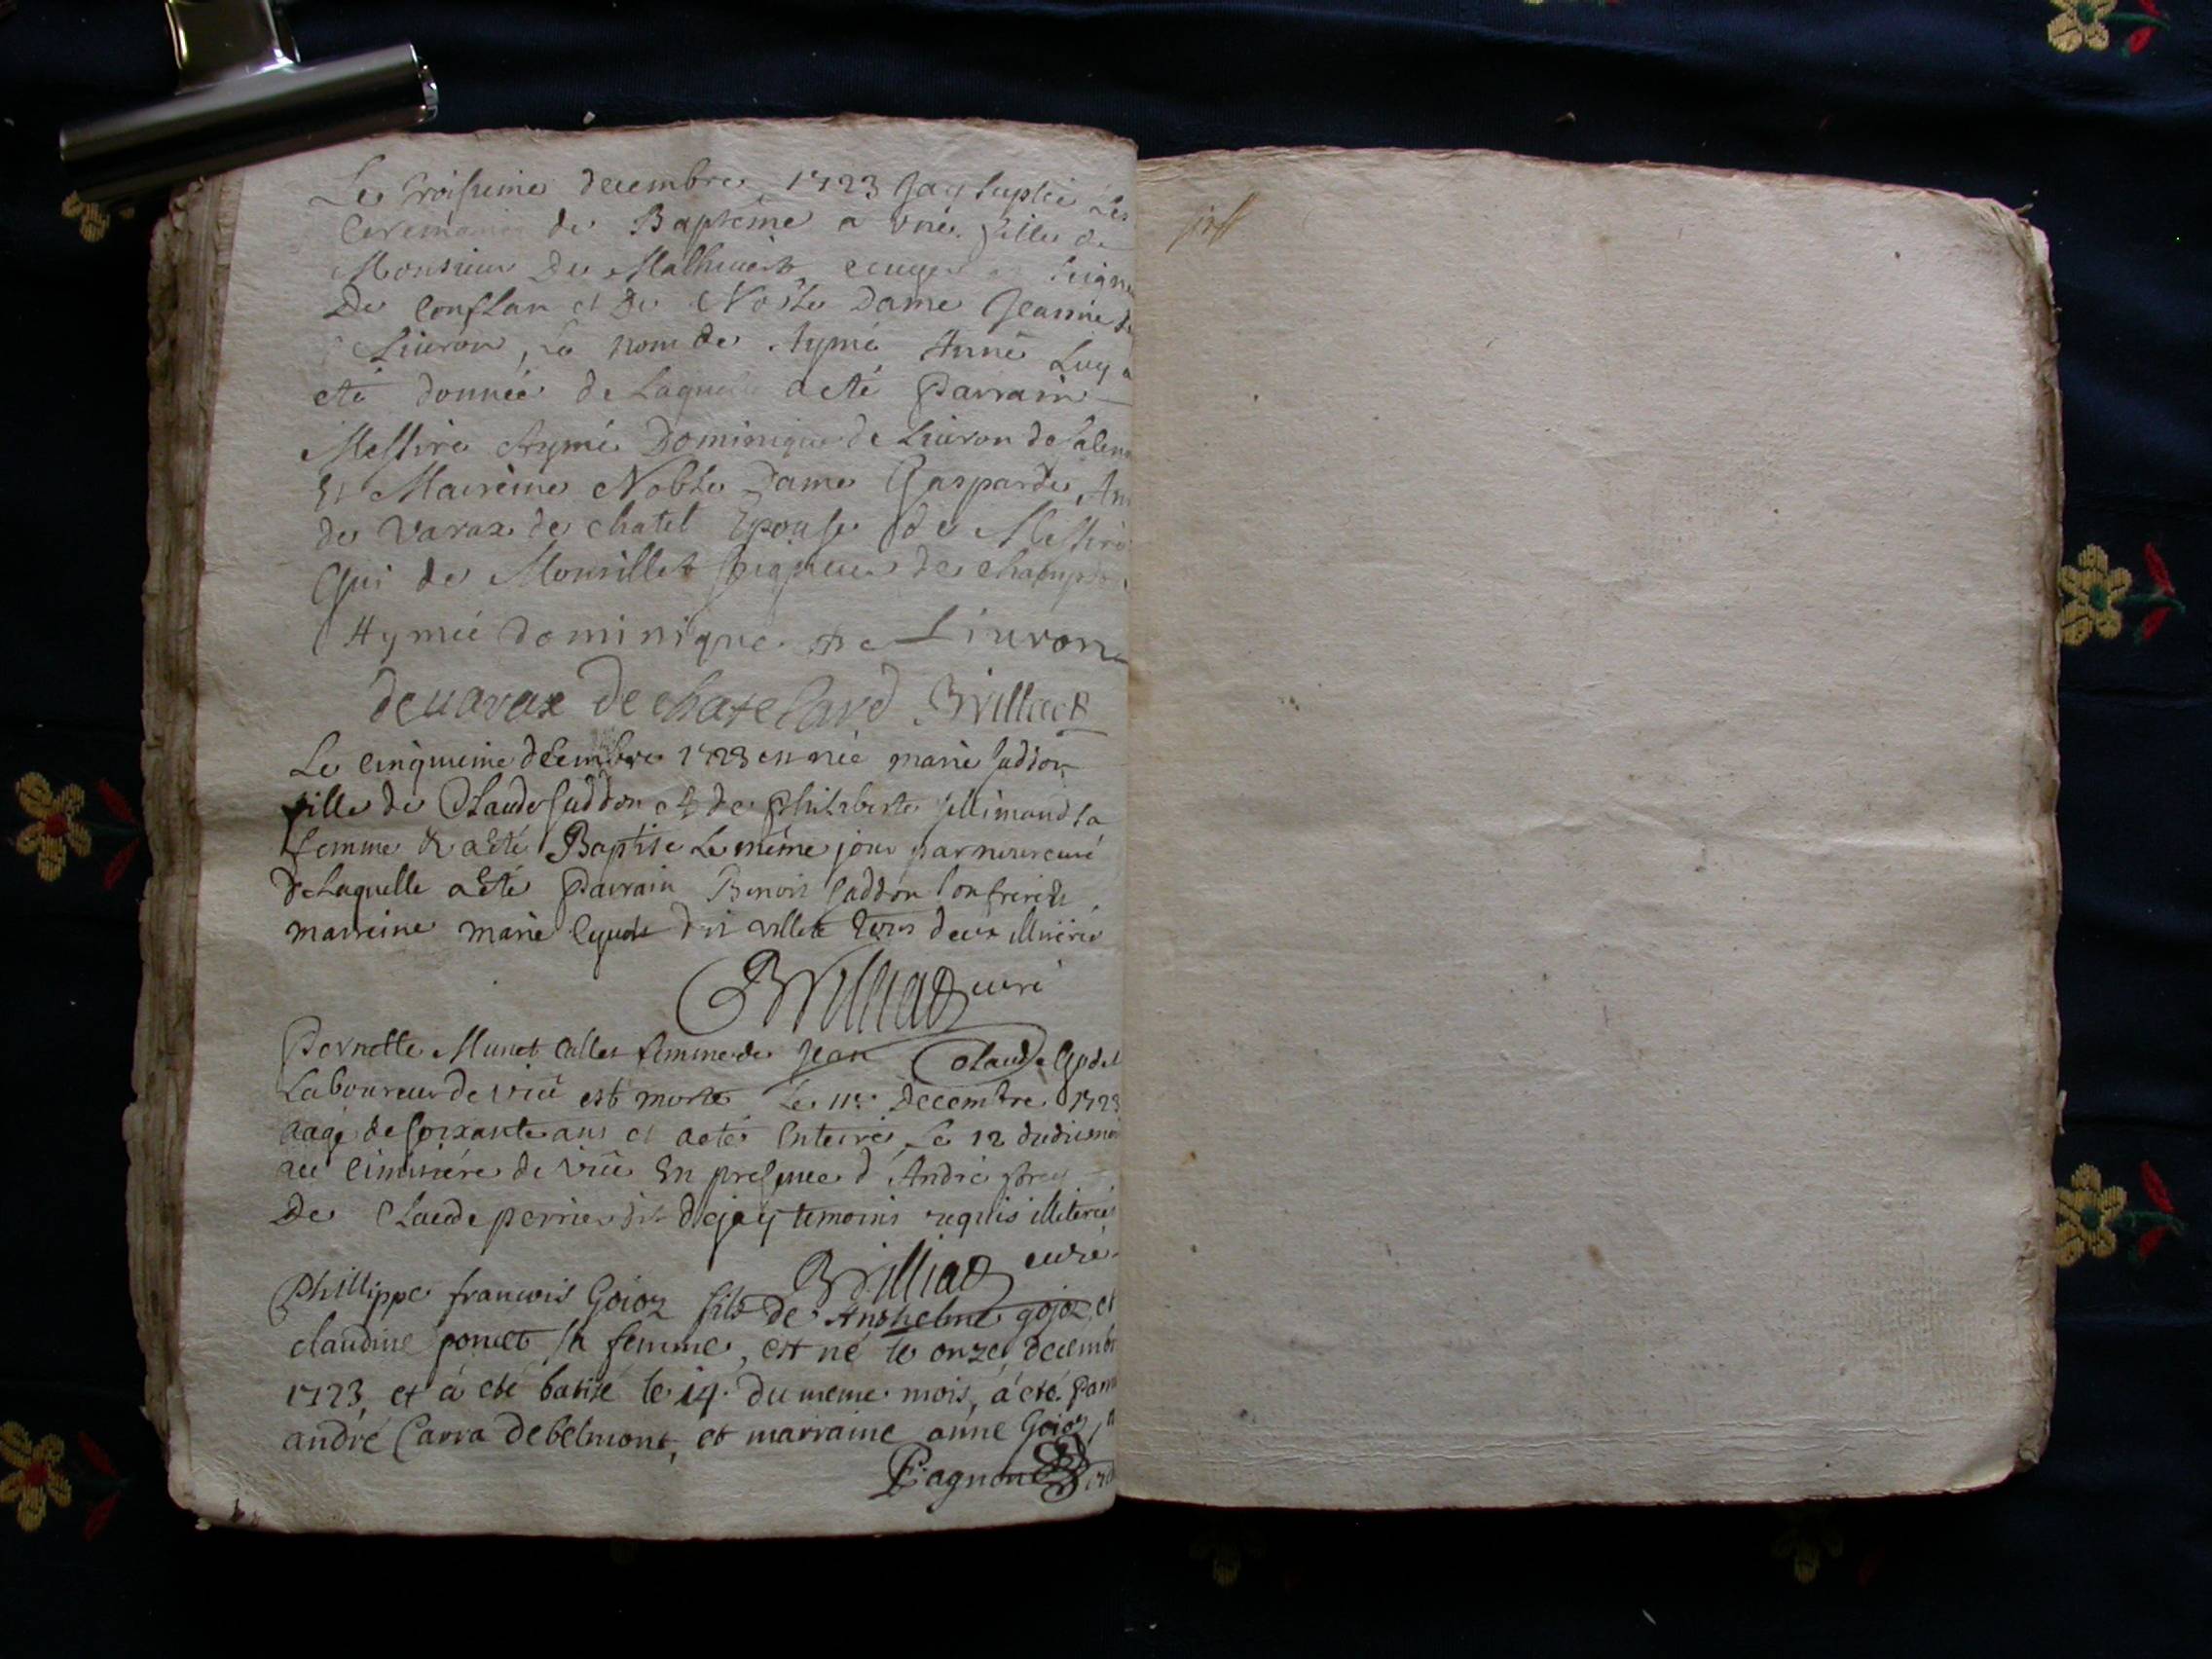 Le troisieme decembre 1723 Jay suplée Les
Ceremonie de Baptéme a une fille de
Monsieur De Malhivert ecuyer Seigne
De Conflan et De Noble Dame Jeanne de
Liuron, Le nom de Aymé Anne Luy a
eté donnée de Laquelle a eté Parrain
Messire Aymé Dominique de Liuron de Salen
Et Mareine Noble Dame Gasparde An
de Varax de chatel Epouse de Messire
Gui de Mourillet Seigneur de champ
Aymée dominique de Liuron
de uarax de chatelard Brilliat
Le cinquieme decembre 1723 est née marie Saddon
fille de Claude Saddon et de philiberte
femme & a eté Baptisé Le méme jour par nous curé
de Laquelle a eté Parrain Benoit Saddon son frere &
marreine marie tous deux
Brilliat curé
Pernette Munet femme de Jean Claude
Laboureur de Viü est morte Le 11e. Decembre 1723
aagé de soixante ans et a eté enterré Le 12 dudit moi
au cimitiére de Viü En presence d'André
De Claude perrier dit dejay temoins requis illiterés
Brilliat curé
Phillippe francois Goioz fils de Anthelme gojoz et
claudine poncet sa femme, est né le onze decemb
1723, et à eté batisé le 14. du meme mois, à eté Parr
andré Carra debelmont, et marraine anne Goioz
Pagnon